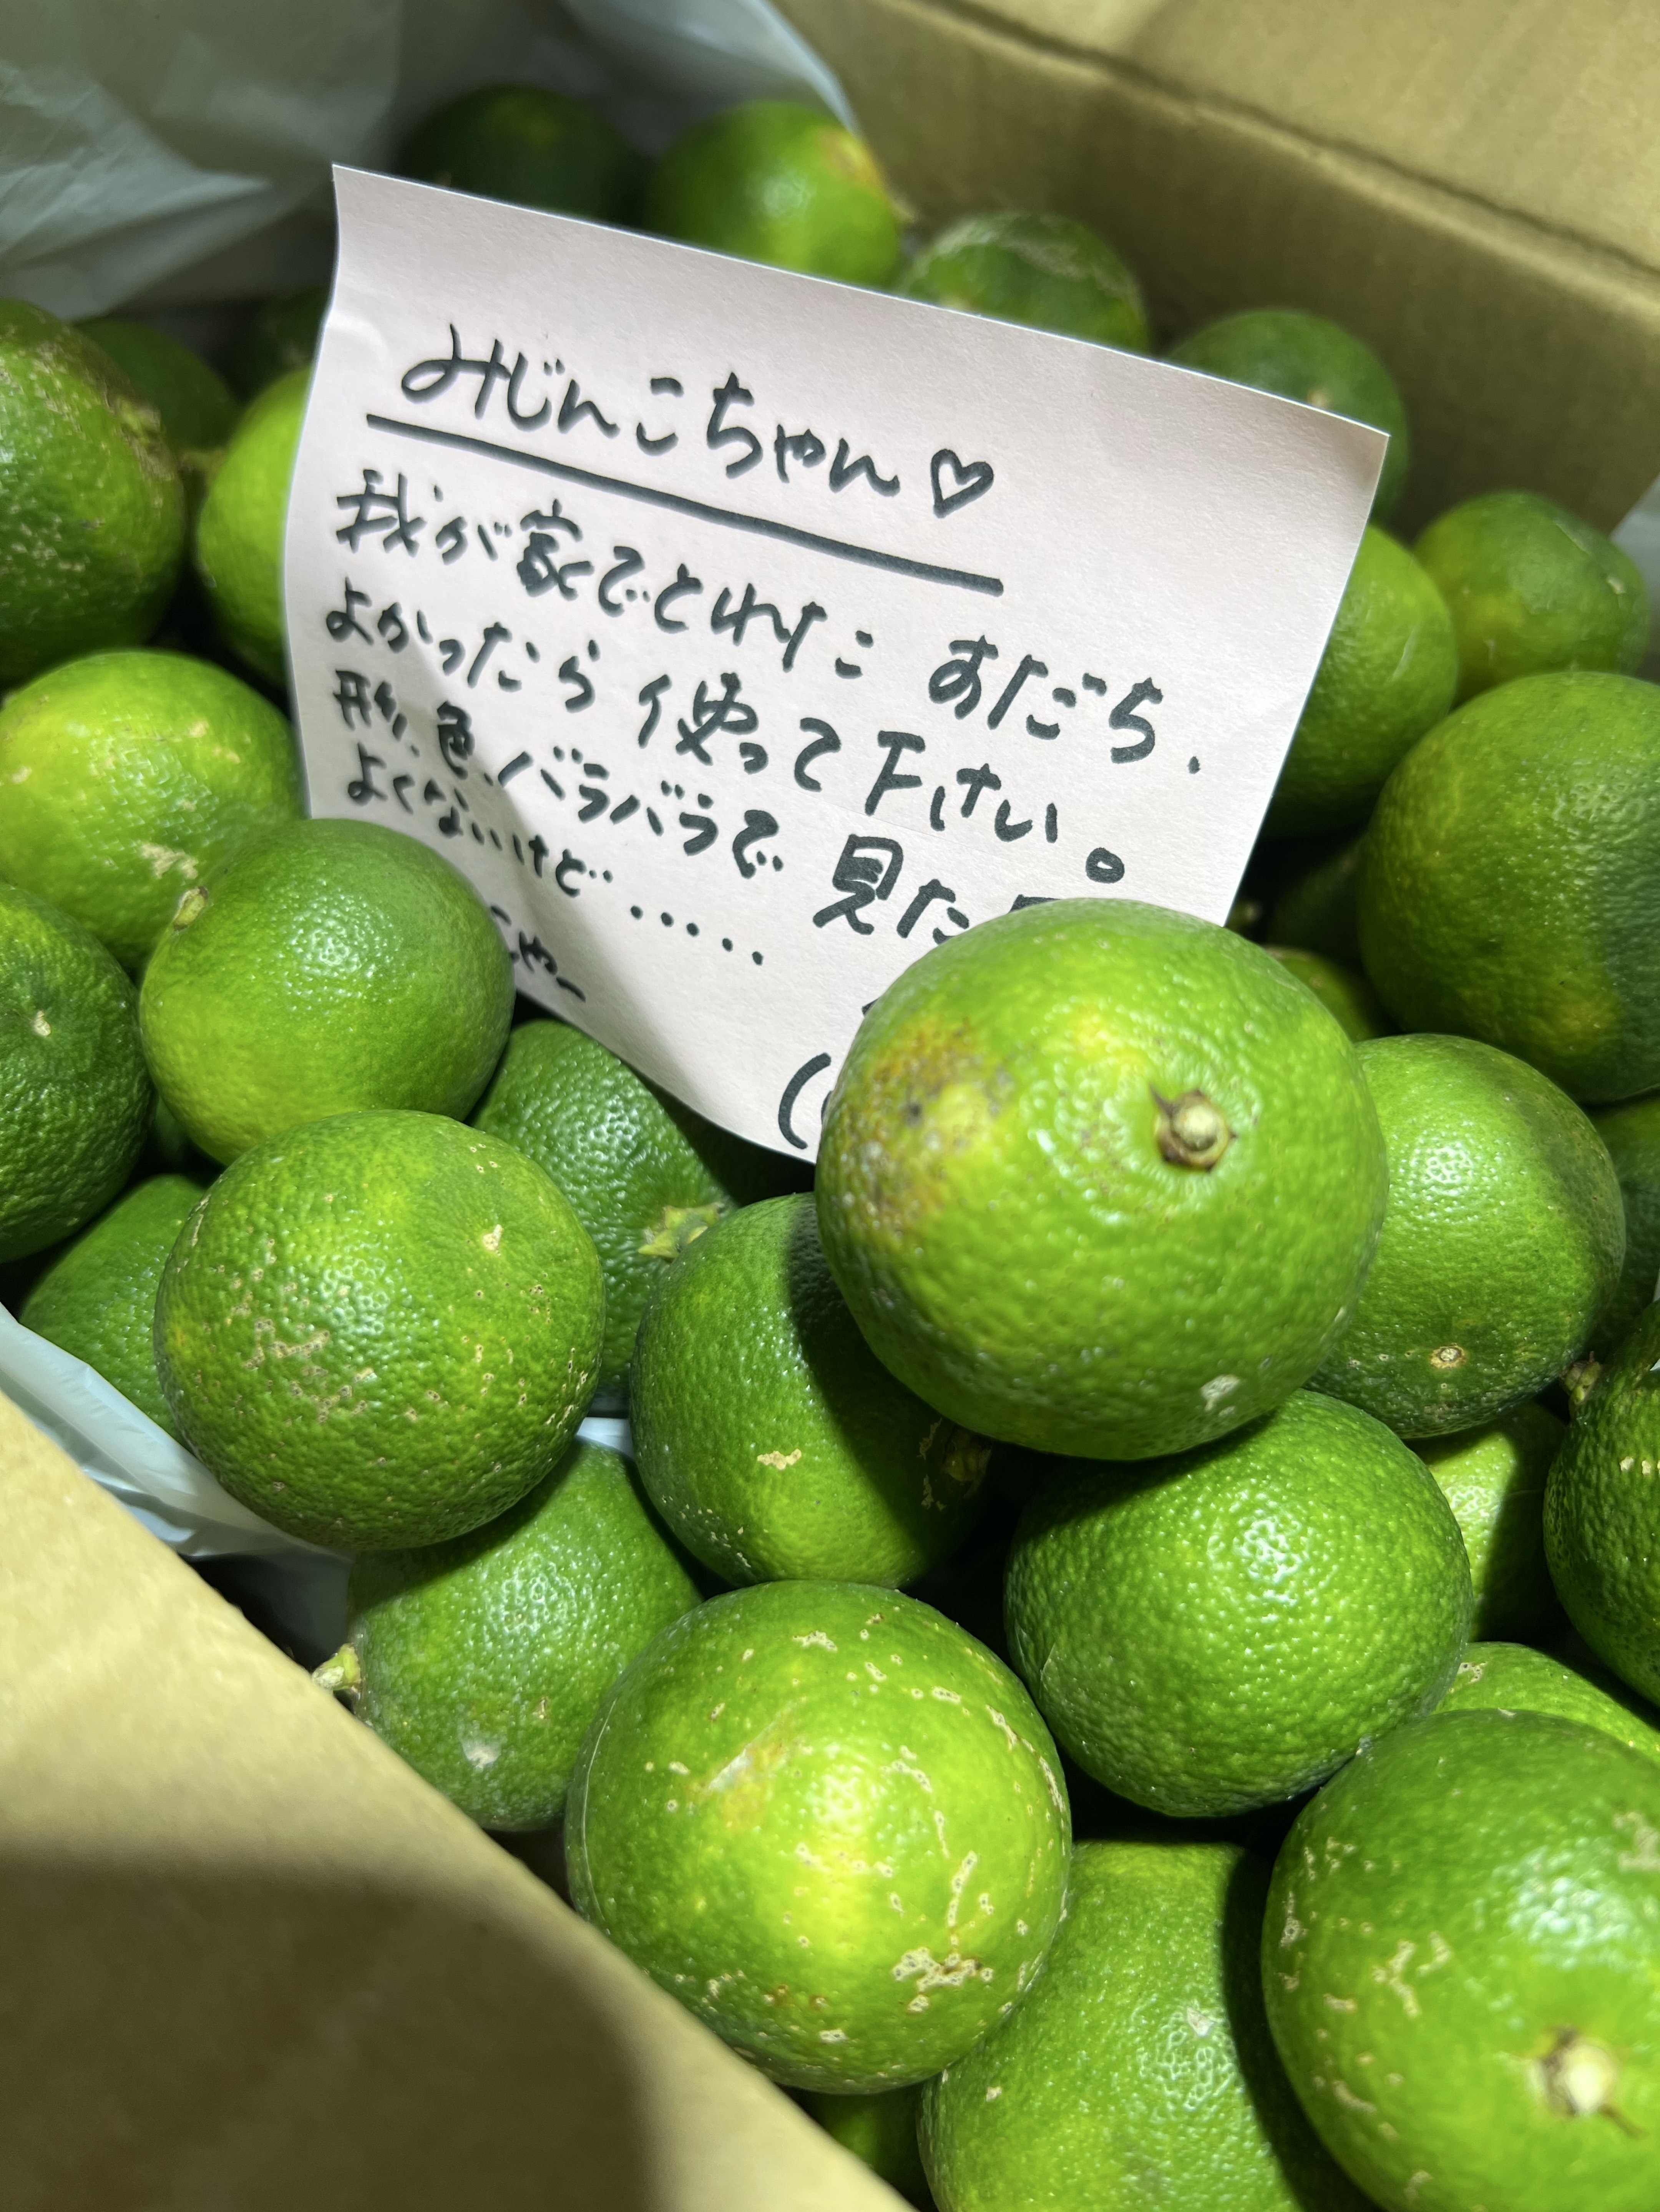 みじんこちゃん♡
我が家でとれた すだち、
よかったら 使って下さい。
形、色、バラバラで 見た
よくないけど……